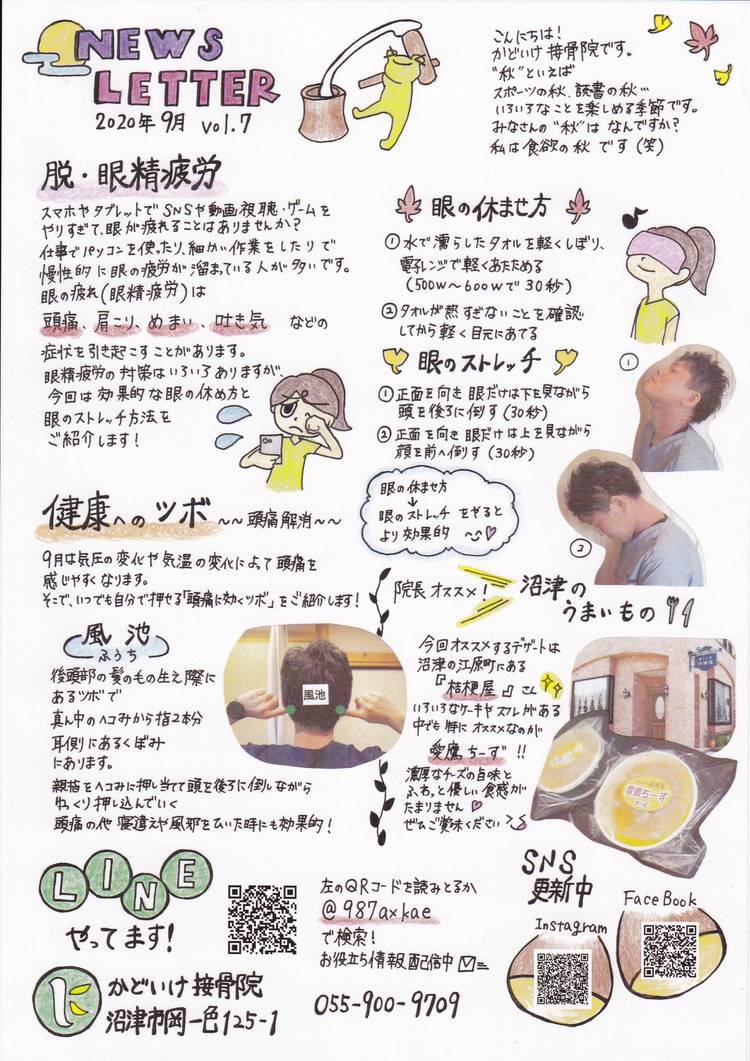 NEWS
LETTER
2020年9月 vol.7
こんにちは!
かどいけ接骨院です。
"秋"といえば
スポーツの秋、読書の秋…
いろいろなことを楽しめる季節です。
みなさんの"秋"は なんですか?
私は食欲の秋 です(笑)
脱・眼精疲労
スマホやタブレットでSNSや動画視聴・ゲームを
やりすぎて、眼が疲れることはありませんか?
仕事でパソコンを使ったり、細かい作業をしたり で
慢性的に眼の疲労が溜まっている人が多いです。
眼の疲れ(眼精疲労)は
頭痛、肩こり、めまい、吐き気 などの
症状を引き起こすことがあります。
眼精疲労の対策はいろいろありますが、
今回は効果的な眼の休め方と
眼のストレッチ方法を
ご紹介します!
眼の休ませ方
①水で濡らしたタオルを軽くしぼり、
電子レンジで軽くあたためる
(500W〜600Wで30秒)
②タオルが熱すぎないことを確認
してから軽く目元にあてる
眼のストレッチ
①正面を向き眼だけは下を見ながら
頭を後ろに倒す(30秒)
②正面を向き 眼だけは上を見ながら
顔を前へ倒す(30秒)
①
②
眼の休ませ方
↓
眼のストレッチ をやると
より効果的
健康へのツボ 〜〜頭痛解消〜〜
9月は気圧の変化や気温の変化によって頭痛を
感じやすくなります。
そこで、いつでも自分で押せる「頭痛に効くツボ」をご紹介します!
風池
ふうち
後頭部の髪のもの生え際に
あるツボで
真ん中のハコみから指2本分
耳側にあるくぼみ
にあります。
風池
親指をハコみに押し当てて頭を後ろに倒しながら
ゆっくり押し込んでいく
頭痛の他 寝違えや風邪をひいた時にも効果的!
院長オススメ!
沼津の
うまいもの
今回オススメするデザートは
沼津の江原町にある
『桔梗屋』さん
いろいろなケーキやスフレがある
中でも特にオススメなのが
愛鷹ちーず!!
濃厚なチーズの旨味と
ふわっと優しい食感が
たまりません
ぜひご賞味ください
愛鷹ちーず
LINE
やってます!
左のQRコードを読みとるか
@987axkae
で検索!
お役立ち情報配信中
SNS
更新中
Instagram
FaceBook
かどいけ接骨院
沼津市岡一色125-1
055-900-9709